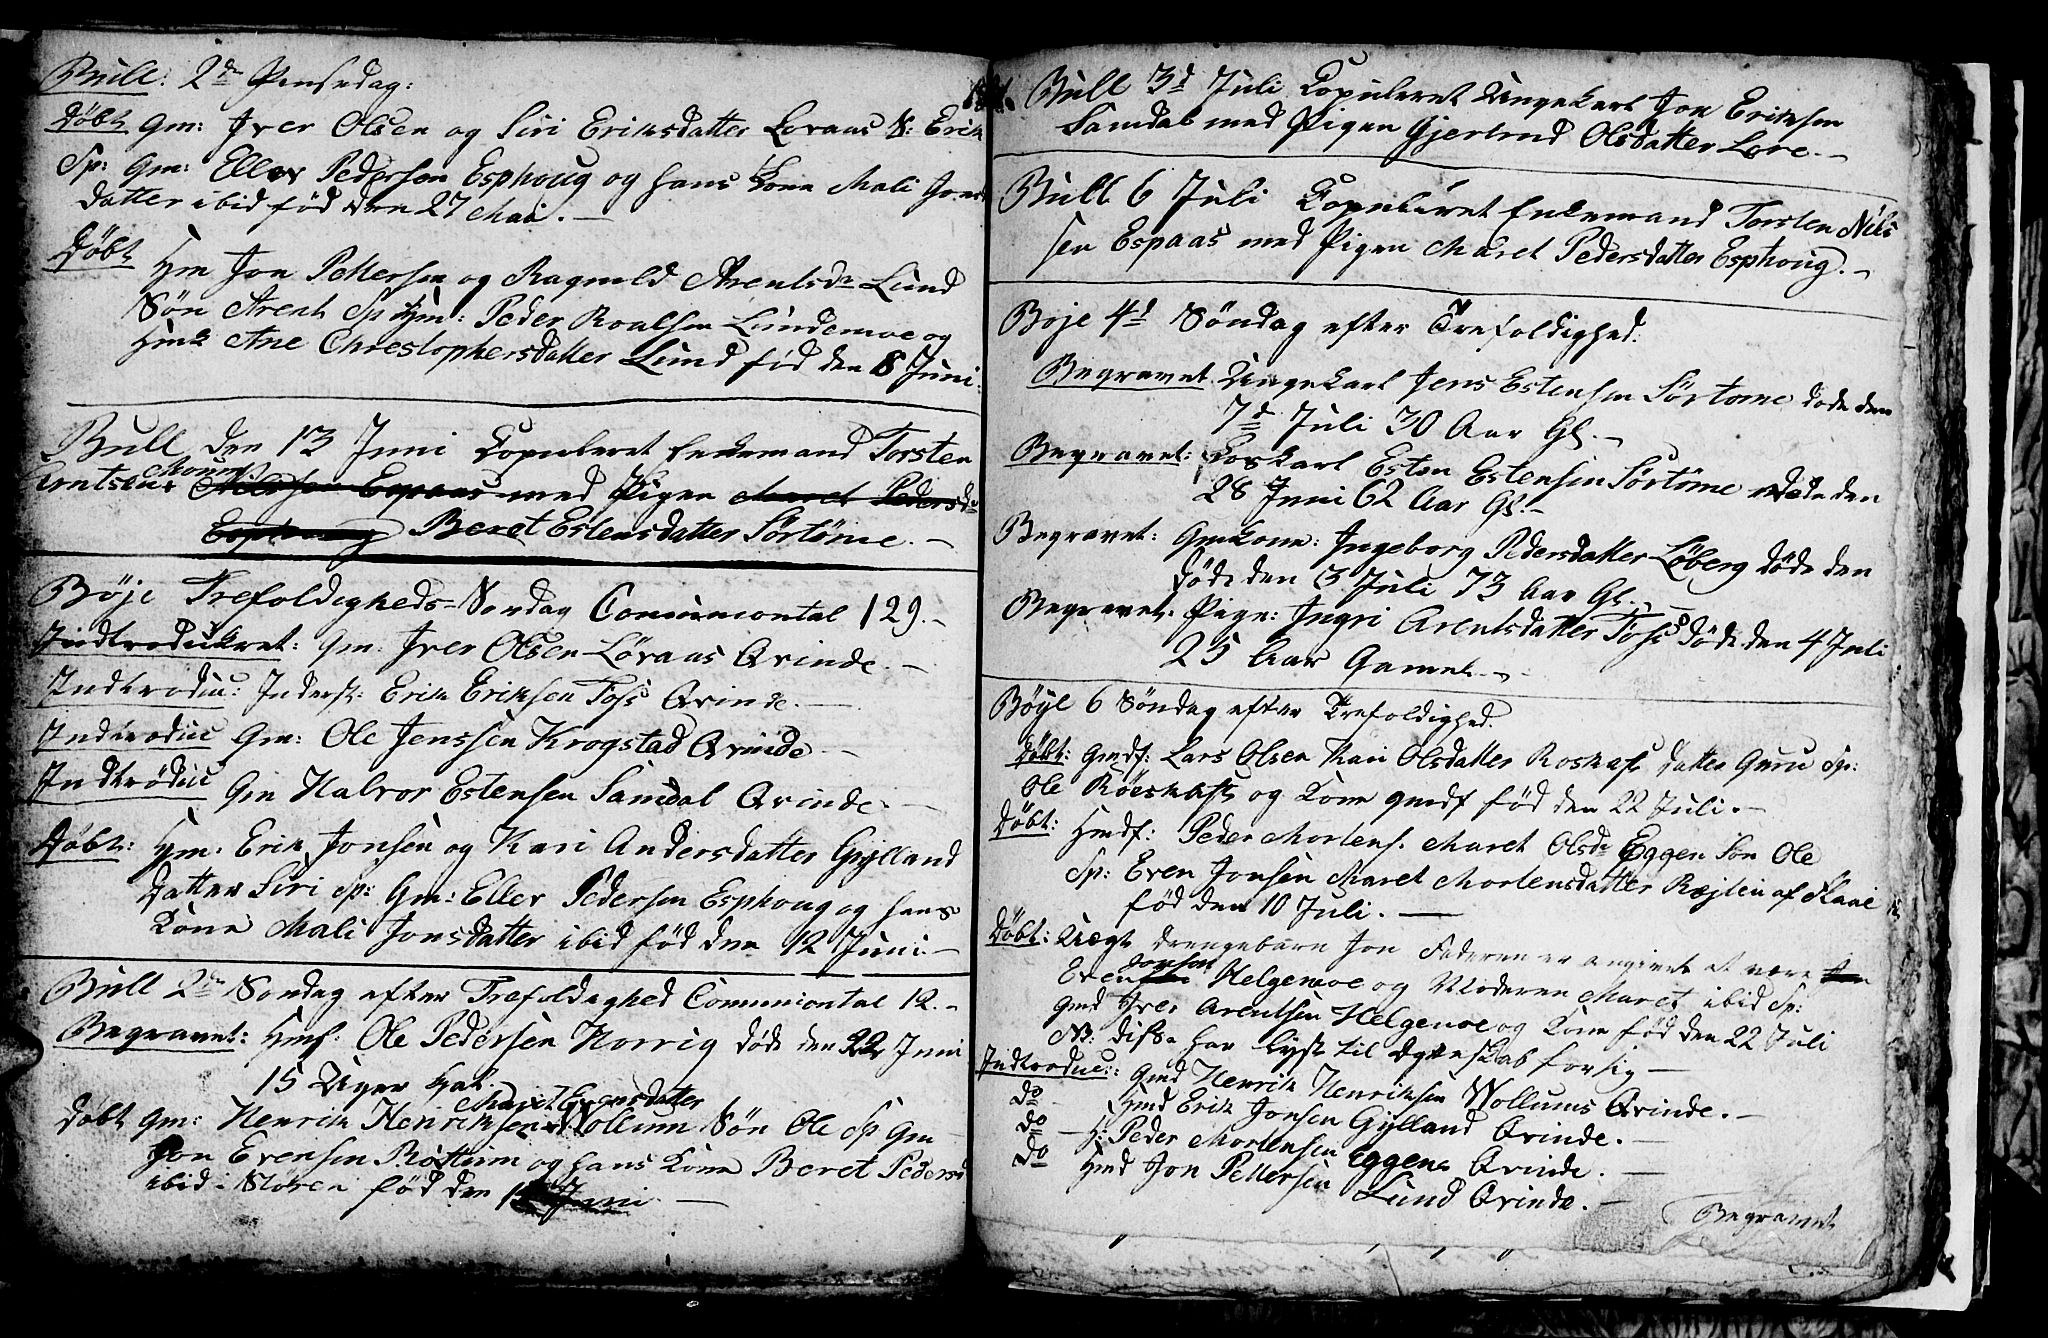 Bull. 2den Pinsedag:
Døbt Gm: Iver Olsen og Siri Eriksdatter Lovaas S: Erik
Sp: Gm: Eller Pedersen Esphoug og hans Kone Mali Jons
datter ibid fød den 27 Mai. —
Døbt Hm Jon Pettersen og Ragnild Arentsdr Lund
Søn Arent Sp Hm: Peder Roalsen Lundemoe og
Hmk Ane Chrestophersdatter Lund fød den 8 Juni:
Bull den 13 Juni Copuleret Enkemand Torsten
Arntsen Moum
Nilssen Espaas med Pigen Maret Pedersdr
Esphoug Beret Estensdatter Sørtøme. —
Bøje Trefoldigheds-Søndag Comunicontal 129. —
Indtroduceret: Gm: Iver Olsen Løvaas Qvinde. —
Indtroduc: Inderst: Erik Eriksen Foss Qvinde. —
Indtroduc Gm: Ole Jenssen Krogstad Qvinde —
Indtrøduc Gm Halvor Estensen Samdal Qvinde. —
Døbt: Hm: Erik Jonsen og Kari Andersdatter Gylland
Datter Siri Sp: Gm: Eller Pedersen Esphoug og hans
Kone Mali Jonsdatter ibid fød den 12 Juni —
Bull 2den Søndag efter Trefoldeghed Communiontal 12. —
Begravet: Hmf: Ole Pedersen Horrig døde den 22 Juni
15 Uger Gal.
Maret Evensdatter
døbt Gm: Henrik Henriksen Wollum Søn Ole Sp Gm
Jon Evensen Røttum og hans Kone Beret Pedersd
ibid i Støren fød den Juni —
Bull 3d Juli Copuleret Ungekarl Jon Eriksen
Samdal med Pigen Gjertrud Olsdatter Lore. —
Bull 6 Juli Copuleret Enkemand Torsten Nils
sen Espaas med Pigen Maret Pedersdatter Esphoug. —
Boje 4d Søndag efter Trefoldighed:
Begravet Ungekarl Jens Estensen Sørtome døde den
7d Juli 30 Aar Gl. —
Begravet: Eskarl Esten Estensen Sørtøme døde den
28 Juni 62 Aar Gl. —
Begravet: Gmkone: Ingeborg Pedersdatter Løberg døde den
døde den 3 Juli 73 Aar Gl. —
Begravet: Pige: Ingri Arentsdatter Foss døde den 4 Juli
25 Aar Gamel. —
Bøyl 6 Søndag efter Trefoldighed.
Døbt: Gmdf: Lars Olsen Kari Olsdatter Roskaft datter Guru Sp:
Ole Röeskaft og Kone gmdf fød den 22 Juli. —
Døbt: Hmdf: Peder Mortens. Maret Olsdr Eggen Søn Ole
Sp: Even Jonsen Maret Mortensdatter Røjten af Flaae
fød den 10 Juli. —
Døbt: Uægt drengebarn Jon Faderen er angivet at være
Jonsen
Even Helgemoe og Moderen Maret ibid Sp:
Gmd Iver Arentsen Helgemoe og Kone fød den 22 Juli
NB: disse har lyst til Ægteskab for sig —
Indtroduc: Gmd Henrik Henriksen Wollums Qvinde. —
do Hmd Erik Jonsen Gylland Qvinde. —
do — H: Peder Mortensen Eggens Qvinde. —
do Hmd Jon Pettersen Lund Qvinde. —
Begravet